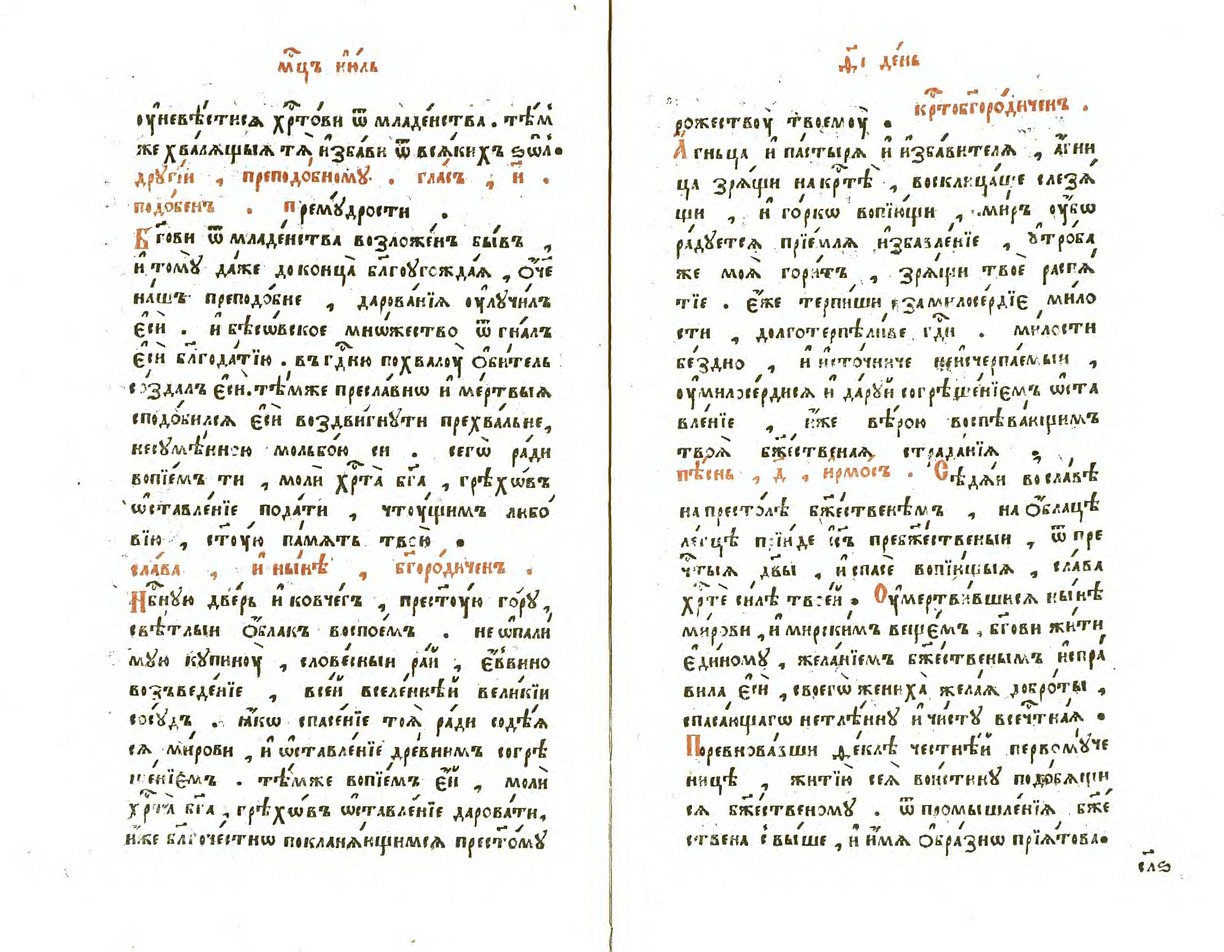 мⷭ҇цъ ию́ль
оу҆невѣ́стися хрⷭ҇то́ви ѿ младе́нства . тѣ́м
же хваля́щыя тя̀ и҆зба́ви ѿ вся́кихъ ѕѡ́л .
другі́й , преподо́бному . гла́съ , и҃ .
подо́бенъ . прему́дрости .
Бг҃ови ѿ младе́нства возложе́нъ бы́въ ,
и҆ тому̀ да́же до конца̀ бл҃гоугожда́я , ѻ҆́ч҃е
на́шъ преподо́бне , дарова́нія оу҆лучи́лъ
є҆сѝ . и҆ бѣсѡ́вское мно́жество ѿгна́лъ
є҆сѝ бл҃года́тію . въ гдⷭ҇ню похвалоу̀ ѻ҆би́тель
созда́лъ є҆сѝ . тѣ́мже пресла́внѡ и҆ ме́ртвыя
сподо́бился є҆сѝ воздви́гнути прехва́льне ,
несумѣ́нною мольбо́ю си . сего̀ ра́ди
вопіе́мъ ти , молѝ хрⷭ҇та̀ бг҃а , грѣхо́въ
ѡ҆ставле́ніе пода́ти , чтоу́щимъ любо́
вію , ст҃о́ую па́мять твою̀ .
сла́ва , и҆ ны́нѣ , бг҃оро́диченъ .
Нбⷭ҇ную две́рь и҆ ковче́гъ , прест҃о́ую го́ру ,
свѣ́тлыи ѻ҆́блак воспое́мъ . неѡпали́
мую купиноу̀ , слове́сныи ра́й , є҆́ввино
возъведе́ніе , все́й вселе́ннѣй вели́кіи
сосу́дъ . ꙗ҆́кѡ спасе́ніе тоя̀ ра́ди содѣ́я
ся ми́рови , и҆ ѡ҆ставле́ніе дре́внимъ согрѣ
ше́ніемъ . тѣ́мже вопіе́мъ є҆́й , молѝ
хрⷭ҇та̀ бг҃а , грѣхо́въ ѡ҆ставле́ніе дарова́ти ,
и҆́же бл҃гоче́стнѡ покланя́ющимся прест҃о́му
д҃і де́нь
рожествоу̀ твоемоу̀ . крⷭ҇тобг҃оро́диченъ .
А҆́гньца и҆ па́стыря и҆ и҆зба́вителя , а҆́гни
ца зря́щи на крⷭ҇тѣ̀ , восклица́ше слезя́
щи , и҆ го́ркѡ вопію́щи , ми́ръ оу҆́бѡ
ра́дуется пріе́мля и҆збавле́ніе , утро́ба
же моя̀ гори́тъ , зря́щи твоѐ распя́
тіе . є҆́же терпи́ши за милосе́рдіе мило
сти , долготерпѣли́ве гдⷭ҇и . ми́лости
бе́здно , и҆ и҆сто́чниче неисчерпа́емыи ,
оу҆милосе́рдися и҆ да́руй согрѣше́ніемъ ѡ҆ста
вле́ніе , и҆́же вѣ́рою воспѣва́ющимъ
твоя̀ бжⷭ҇твеная страда́нія .
пѣ́снь , д҃ , ирмосъ . Сѣдя́и во сла́вѣ
на престо́лѣ бжⷭ҇тве́нѣмъ , на ѻ҆́блацѣ
ле́гцѣ прїи́де і҆с҃ъ пребжⷭ҇твеныи , ѿ пре
чⷭ҇тыя дв҃ы , и҆ спасѐ вопію́щыя , сла́ва
хрⷭ҇тѐ си́лѣ твое́й . Оу҆мертви́вшися ны́нѣ
ми́рови , и҆ мирски́мъ веще́мъ , бг҃ови жи́ти
є҆ди́ному , жела́ніемъ бжⷭ҇твенымъ и҆спра́
вила є҆сѝ , своего̀ жениха̀ жела́я добро́ты ,
спаса́ющаго нетлѣ́нну и҆ чи́сту всечⷭ҇тна́я .
Поревнова́вши ѳе́клѣ честнѣ́й первому́че
ницѣ , житію̀ сея̀ вои́стину подо́бящи
ся бжⷭ҇твеному . ѿ промышле́нія бжⷭ҇е
ствена свы́ше , и҆ и҆́мя ѻ҆бра́знѡ прїя́това .
сл҃ѕ